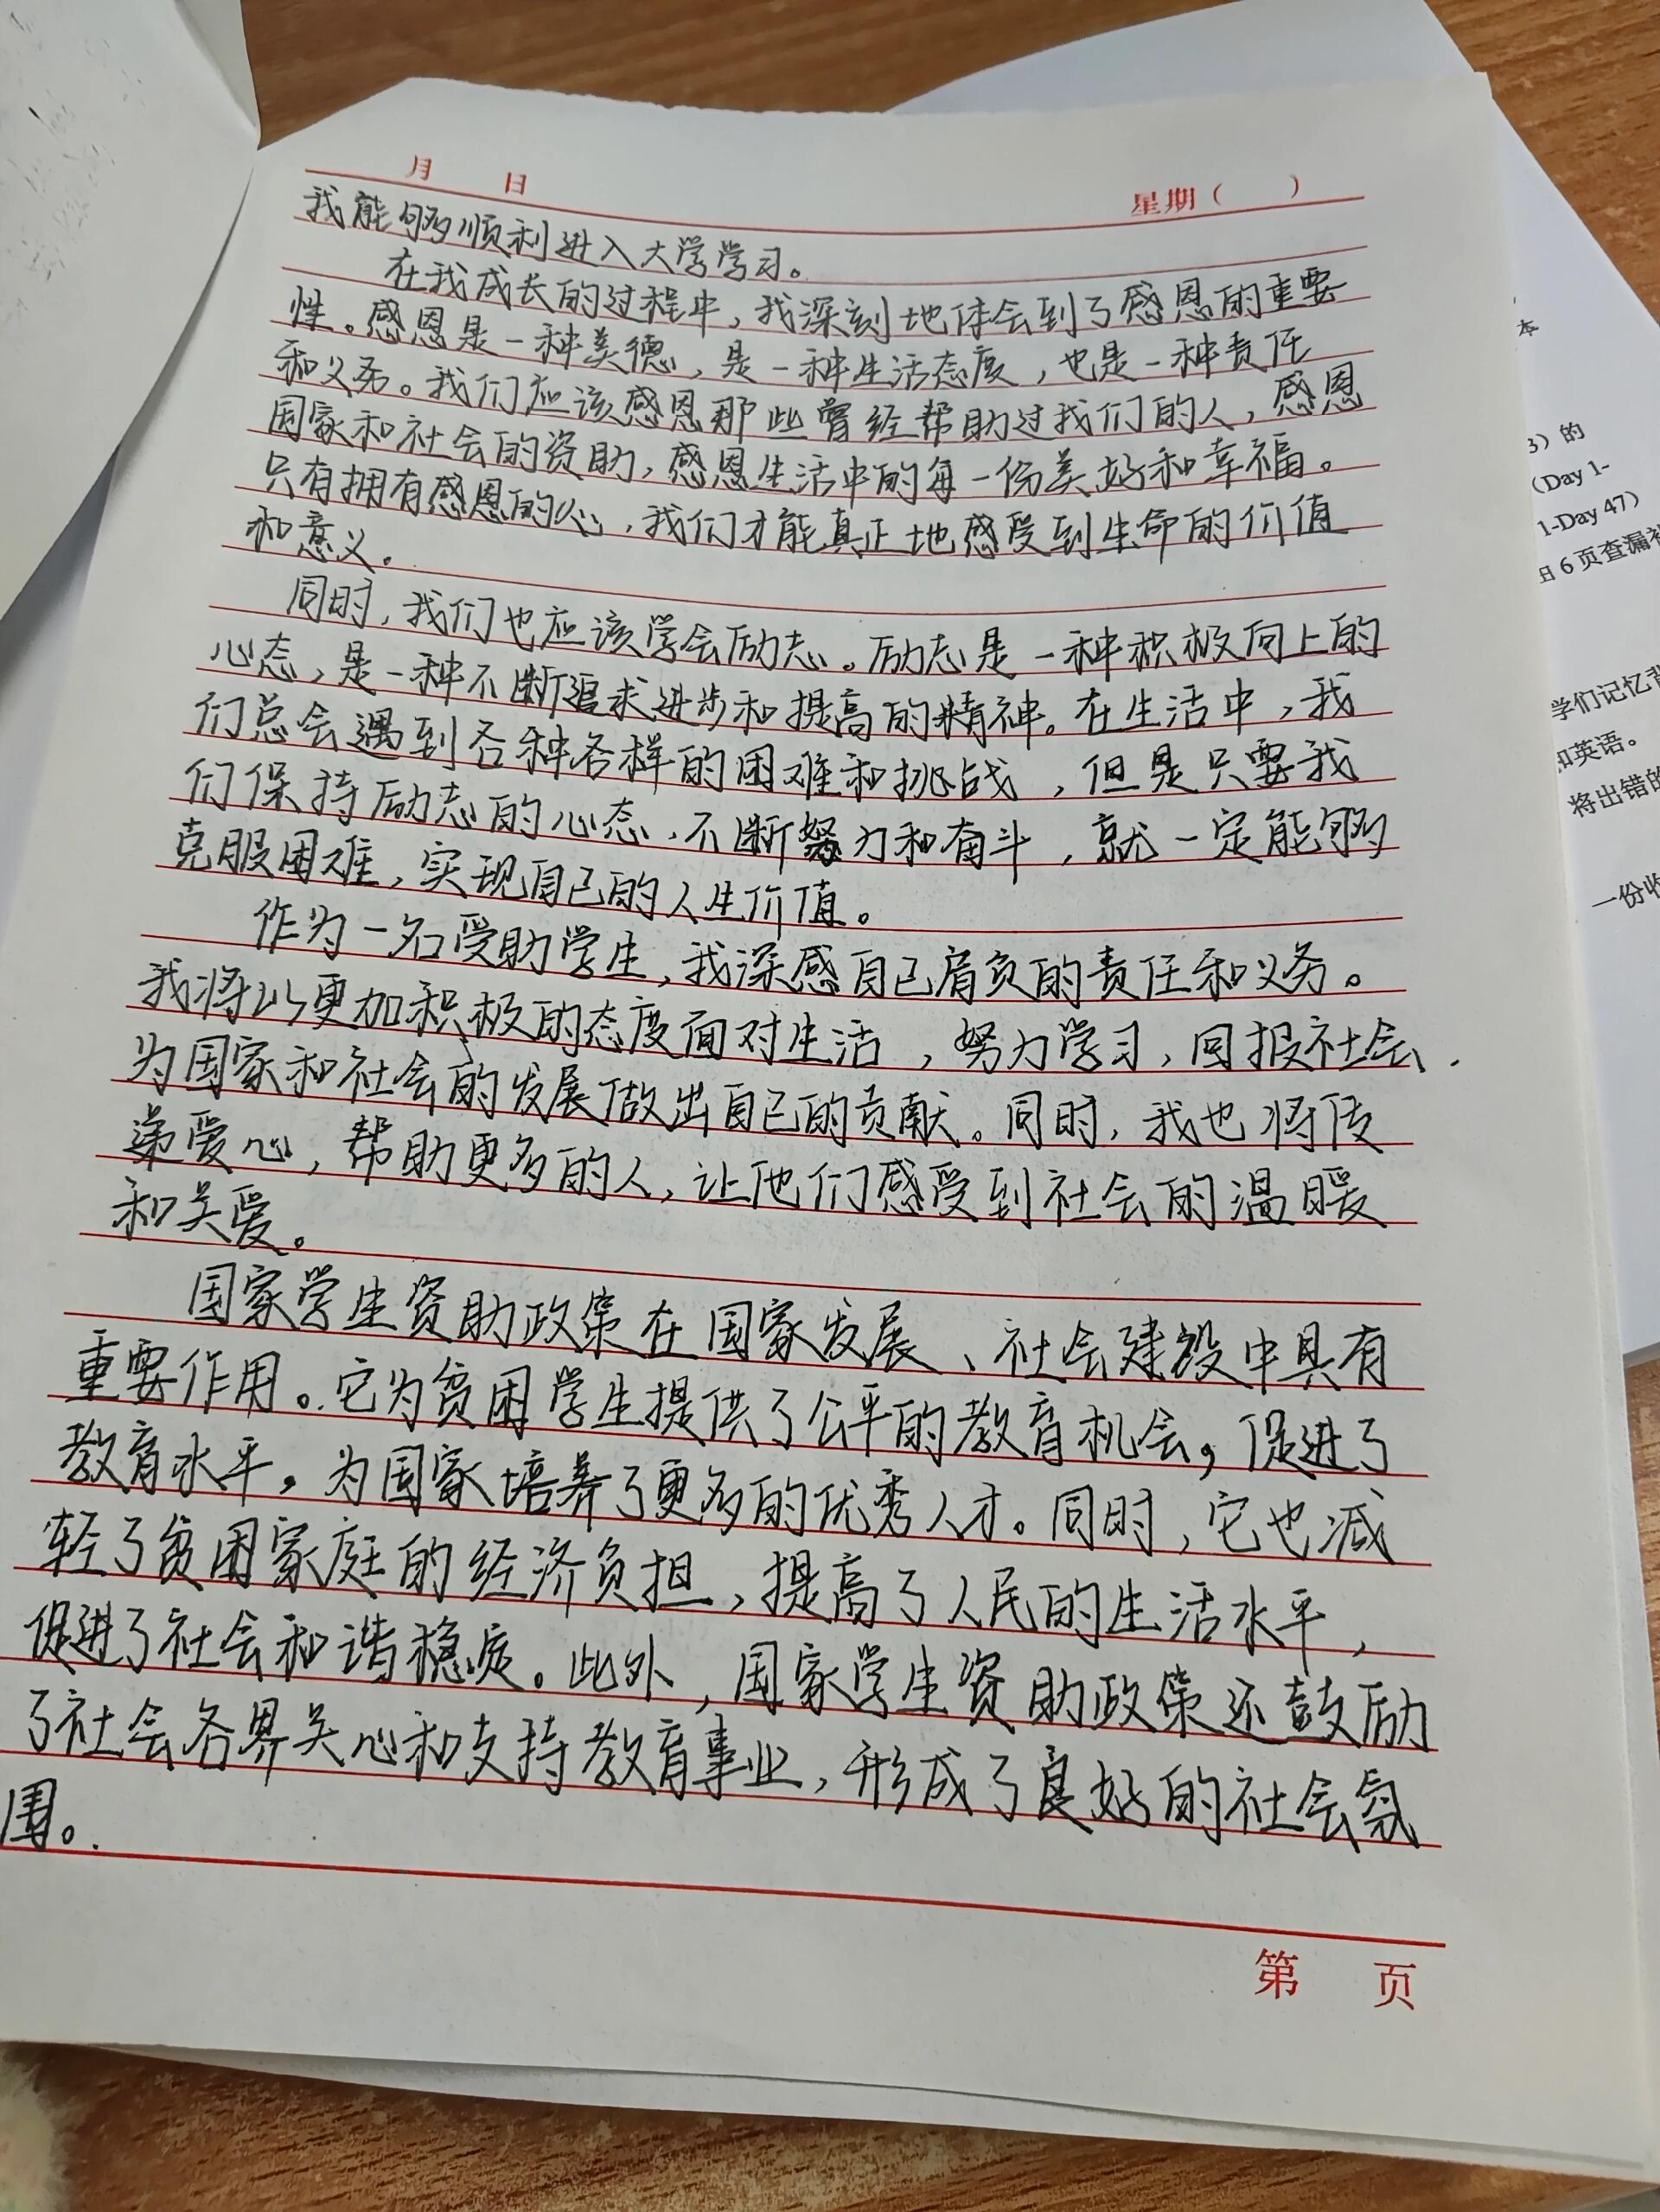 月 日 星期（ ）
我能够顺利进入大学学习。
在我成长的过程中，我深刻地体会到了感恩的重要
性。感恩是一种美德，是一种生活态度，也是一种责任
和义务。我们应该感恩那些曾经帮助过我们的人，感恩
国家和社会的资助，感恩生活中的每一份美好和幸福。
只有拥有感恩的心，我们才能真正地感受到生命的价值
和意义。
同时，我们也应该学会励志。励志是一种积极向上的
心态，是一种不断追求进步和提高的精神。在生活中，我
们总会遇到各种各样的困难和挑战，但是只要我
们保持励志的心态，不断努力和奋斗，就一定能够
克服困难，实现自己的人生价值。
作为一名受助学生，我深感自己肩负的责任和义务。
我将以更加积极的态度面对生活，努力学习，回报社会，
为国家和社会的发展做出自己的贡献。同时，我也将传
递爱心，帮助更多的人，让他们感受到社会的温暖
和关爱。
国家学生资助政策在国家发展、社会建设中具有
重要作用。它为贫困学生提供了公平的教育机会，促进了
教育水平，为国家培养了更多的优秀人才。同时，它也减
轻了贫困家庭的经济负担，提高了人民的生活水平，
促进了社会和谐稳定。此外，国家学生资助政策还鼓励
了社会各界关心和支持教育事业，形成了良好的社会氛
围。
第 页
本
3）的
（Day 1-
1-Day 47）
6 页查漏
学们记忆
和英语。
将出错的
一份收